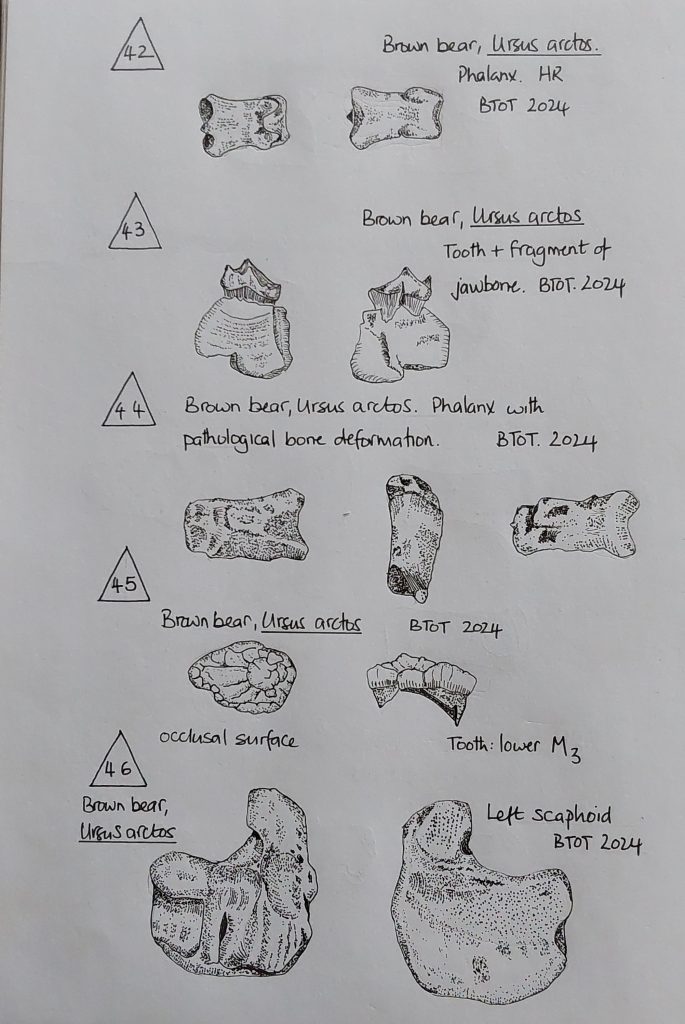 42
Brown bear, Ursus arctos.
Phalanx. HR
BTOT 2024
43
Brown bear, Ursus arctos
Tooth + fragment of
jawbone. BTOT. 2024
44
Brown bear, Ursus arctos. Phalanx with
pathological bone deformation. BTOT. 2024
45
Brown bear, Ursus arctos BTOT 2024
occlusal surface
Tooth: lower M3
46
Brown bear,
Ursus arctos
Left scaphoid
BTOT 2024